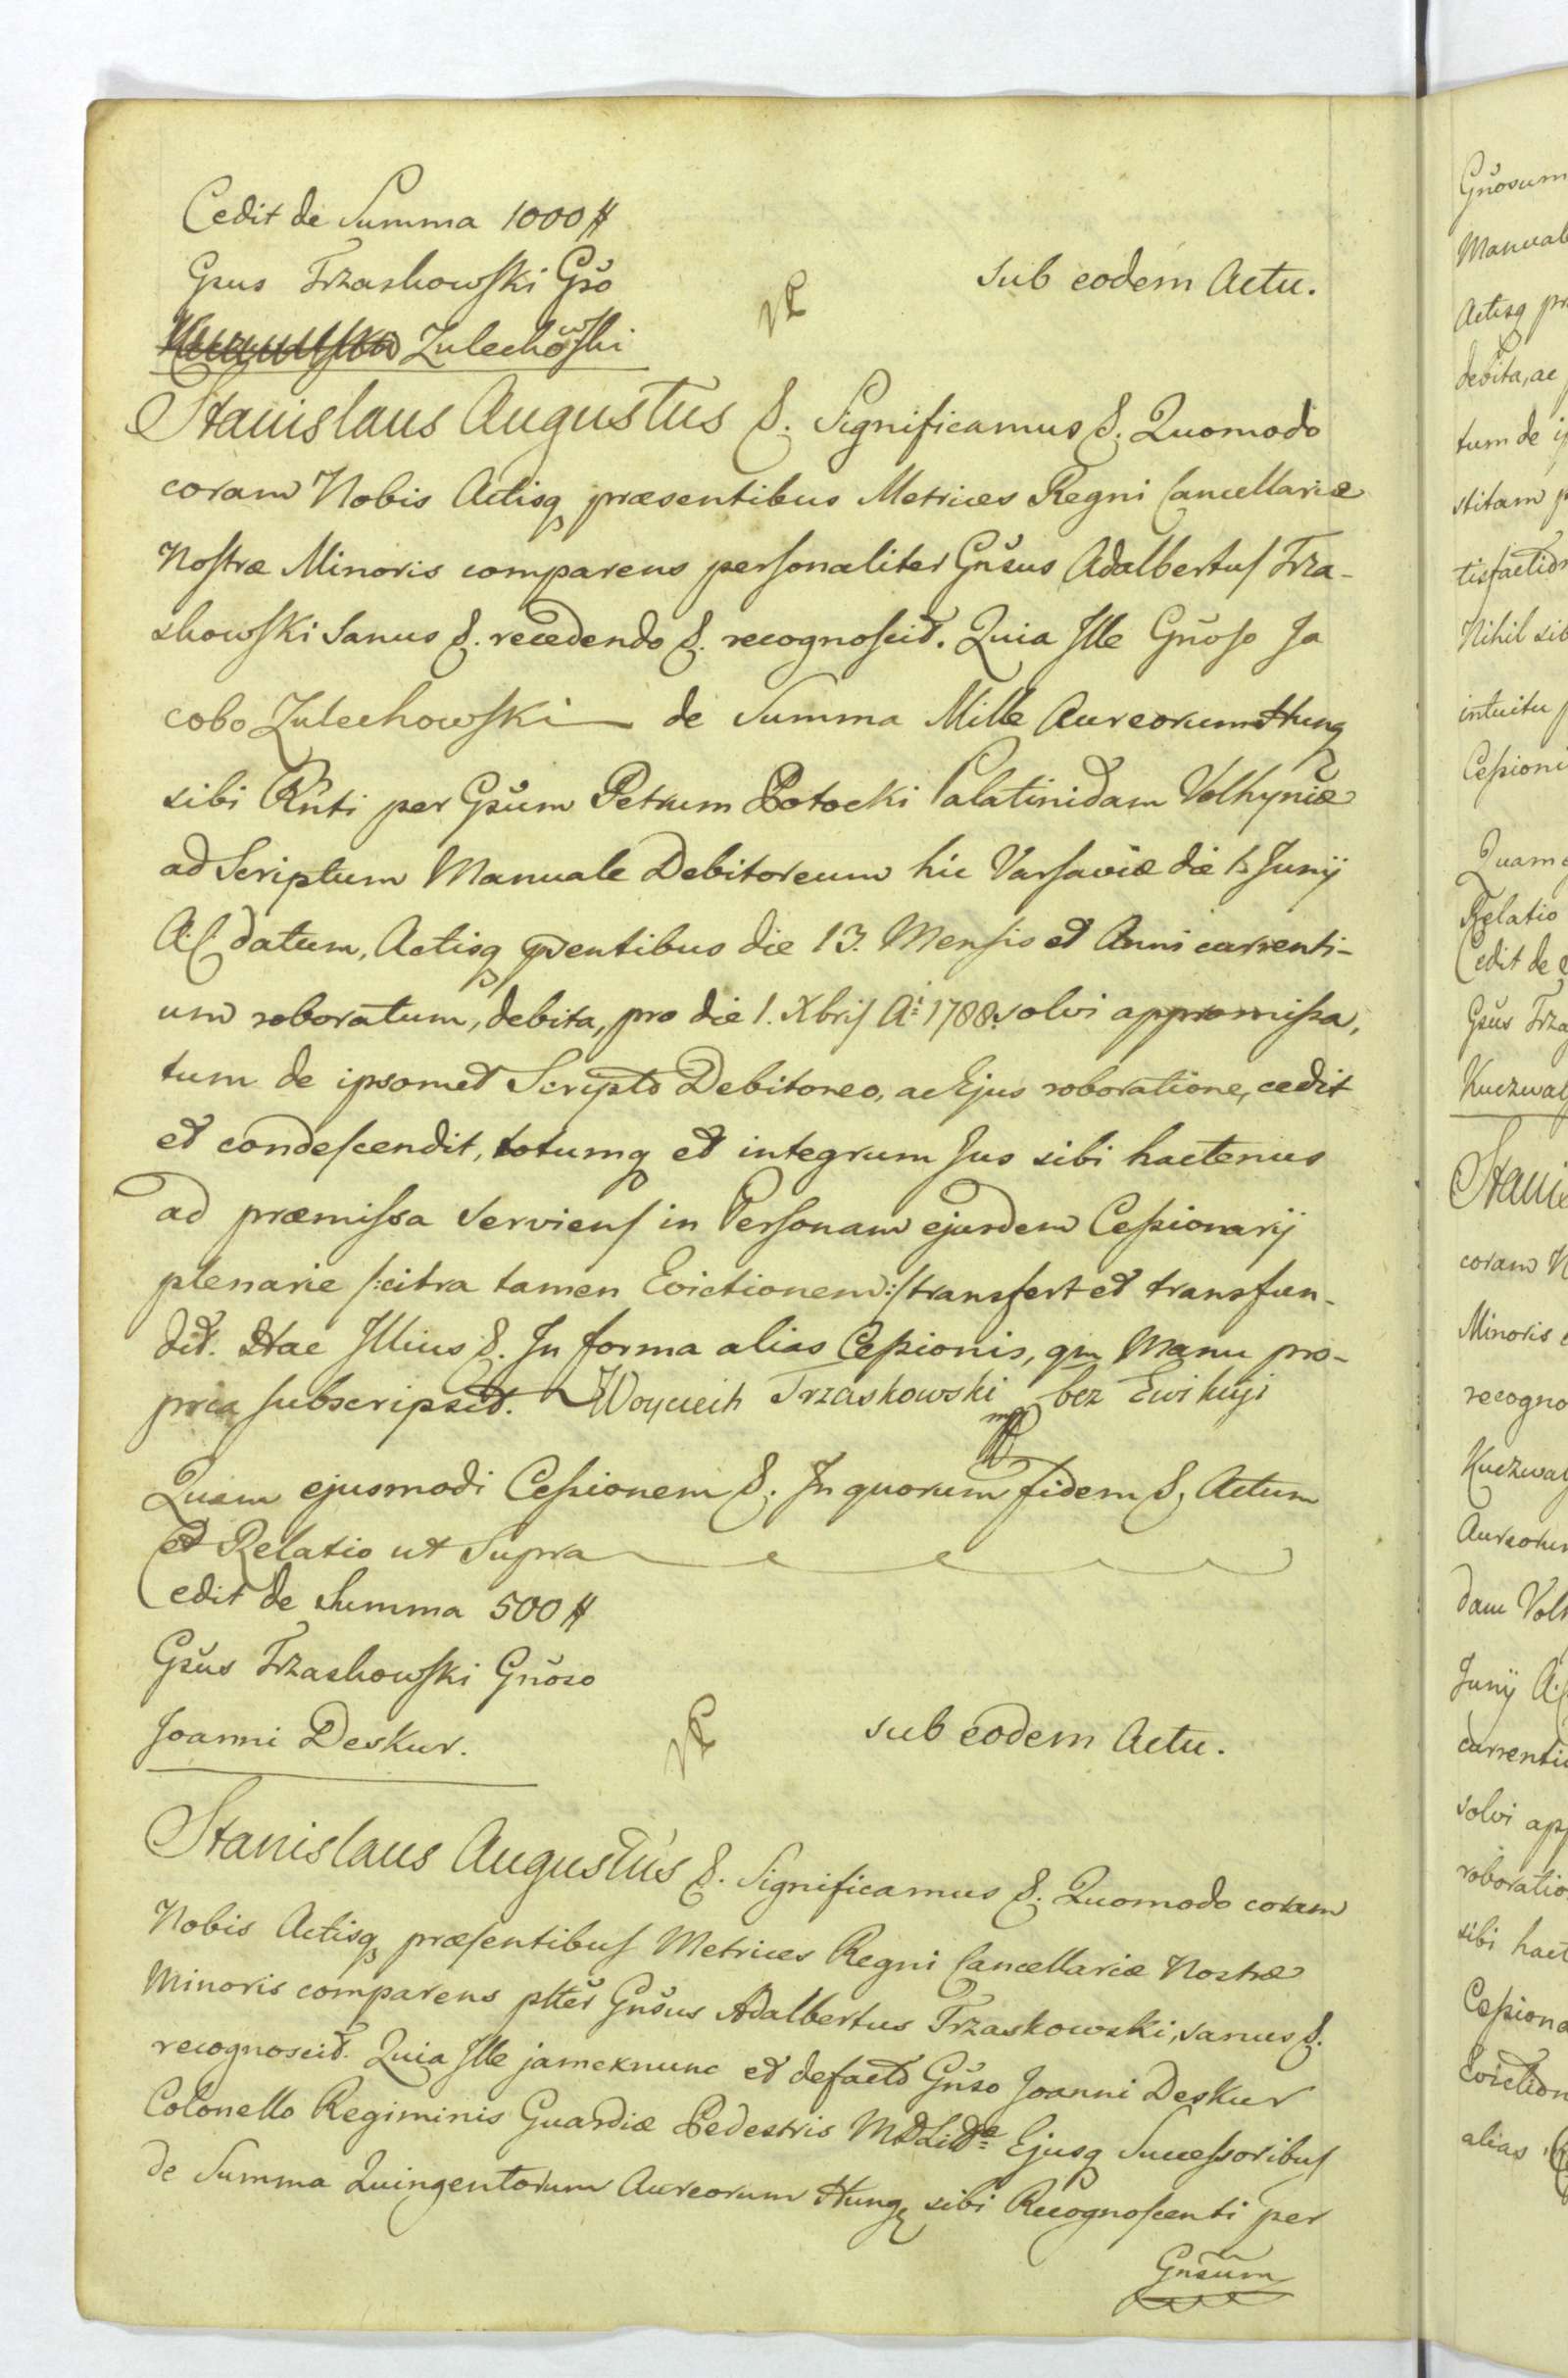 Cedit de Summa 1000 #
Gsus Trzaskowski Gso
Zulechowski
sub eodem Actu.
Stanislaus Augustus &. Significamus &. Quomodo
coram Nobis Actisq praesentibus Metrices Regni Cancellariæ
Nostræ Minoris comparens personaliter Gnsus Adalbertus Trza-
skowski Sanus &. recedendo &. recognoscit. Quia Ille Gnoso Ja
cobo Zulechowski de Summa Mille Aureorum Hung
sibi Rnti per Gsum Petrum Potocki Palatinidam Volhyniæ
ad Scriptum Manuale Debitoreum hic Varsaviæ die 1 Junij
A.C. datum, Actisq pntibus die 13. Mensis et Anni currenti-
um roboratum, debita, pro die 1. Xbris Ai: 1788. solvi appromissa,
tum de ipsomet Scripto Debitoreo, ac Ejus roboratione, cedit
et condescendit, totumq et integrum Jus sibi hactenus
ad præmissa Serviens in Personam ejusdem Cessionarij
plenarie /:citra tamen Evictionem:/ transfert et transfun-
dit. Hac Illius &. In forma alias Cessionis, qm Manu pro-
pria subscripsit. Woyciech Trzaskowski bez Ewikcyi
mp
Quam ejusmodi Cessionem &. In quorum fidem &. Actum
et Relatio ut Supra
Cedit de Summa 500 #
Gsus Trzaskowski Gnoso
Joanni Deskur.
sub eodem Actu.
Stanislaus Augustus &. Significamus &. Quomodo coram
Nobis Actisq præsentibus Metrices Regni Cancellariæ Nostræ
Minoris comparens plter Gnsus Adalbertus Trzaskowski, sanus &.
recognoscit. Quia Ille jamexnunc et defacto Gnso Joanni Deskur
Colonello Regiminis Guardiæ Pedestris MDLitdæ Ejusq Successoribus
de Summa Quingentorum Aureorum Hung sibi Recognoscenti per
Gnsum
Gnosum
Manual
Actisq pr
debita, ac
tum de ip
stitam p
tisfaction
Nihil sib
intuitu p
Cessioni
Quam
Relatio
Cedit de
Gsus Trza
Kuczwal
Stanis
coram N
Minoris
recogno
Kuczwal
Aureorum
dam Volh
Junij A.C.
currenti
solvi app
roboratio
sibi hact
Cessiona
Eviction
alias